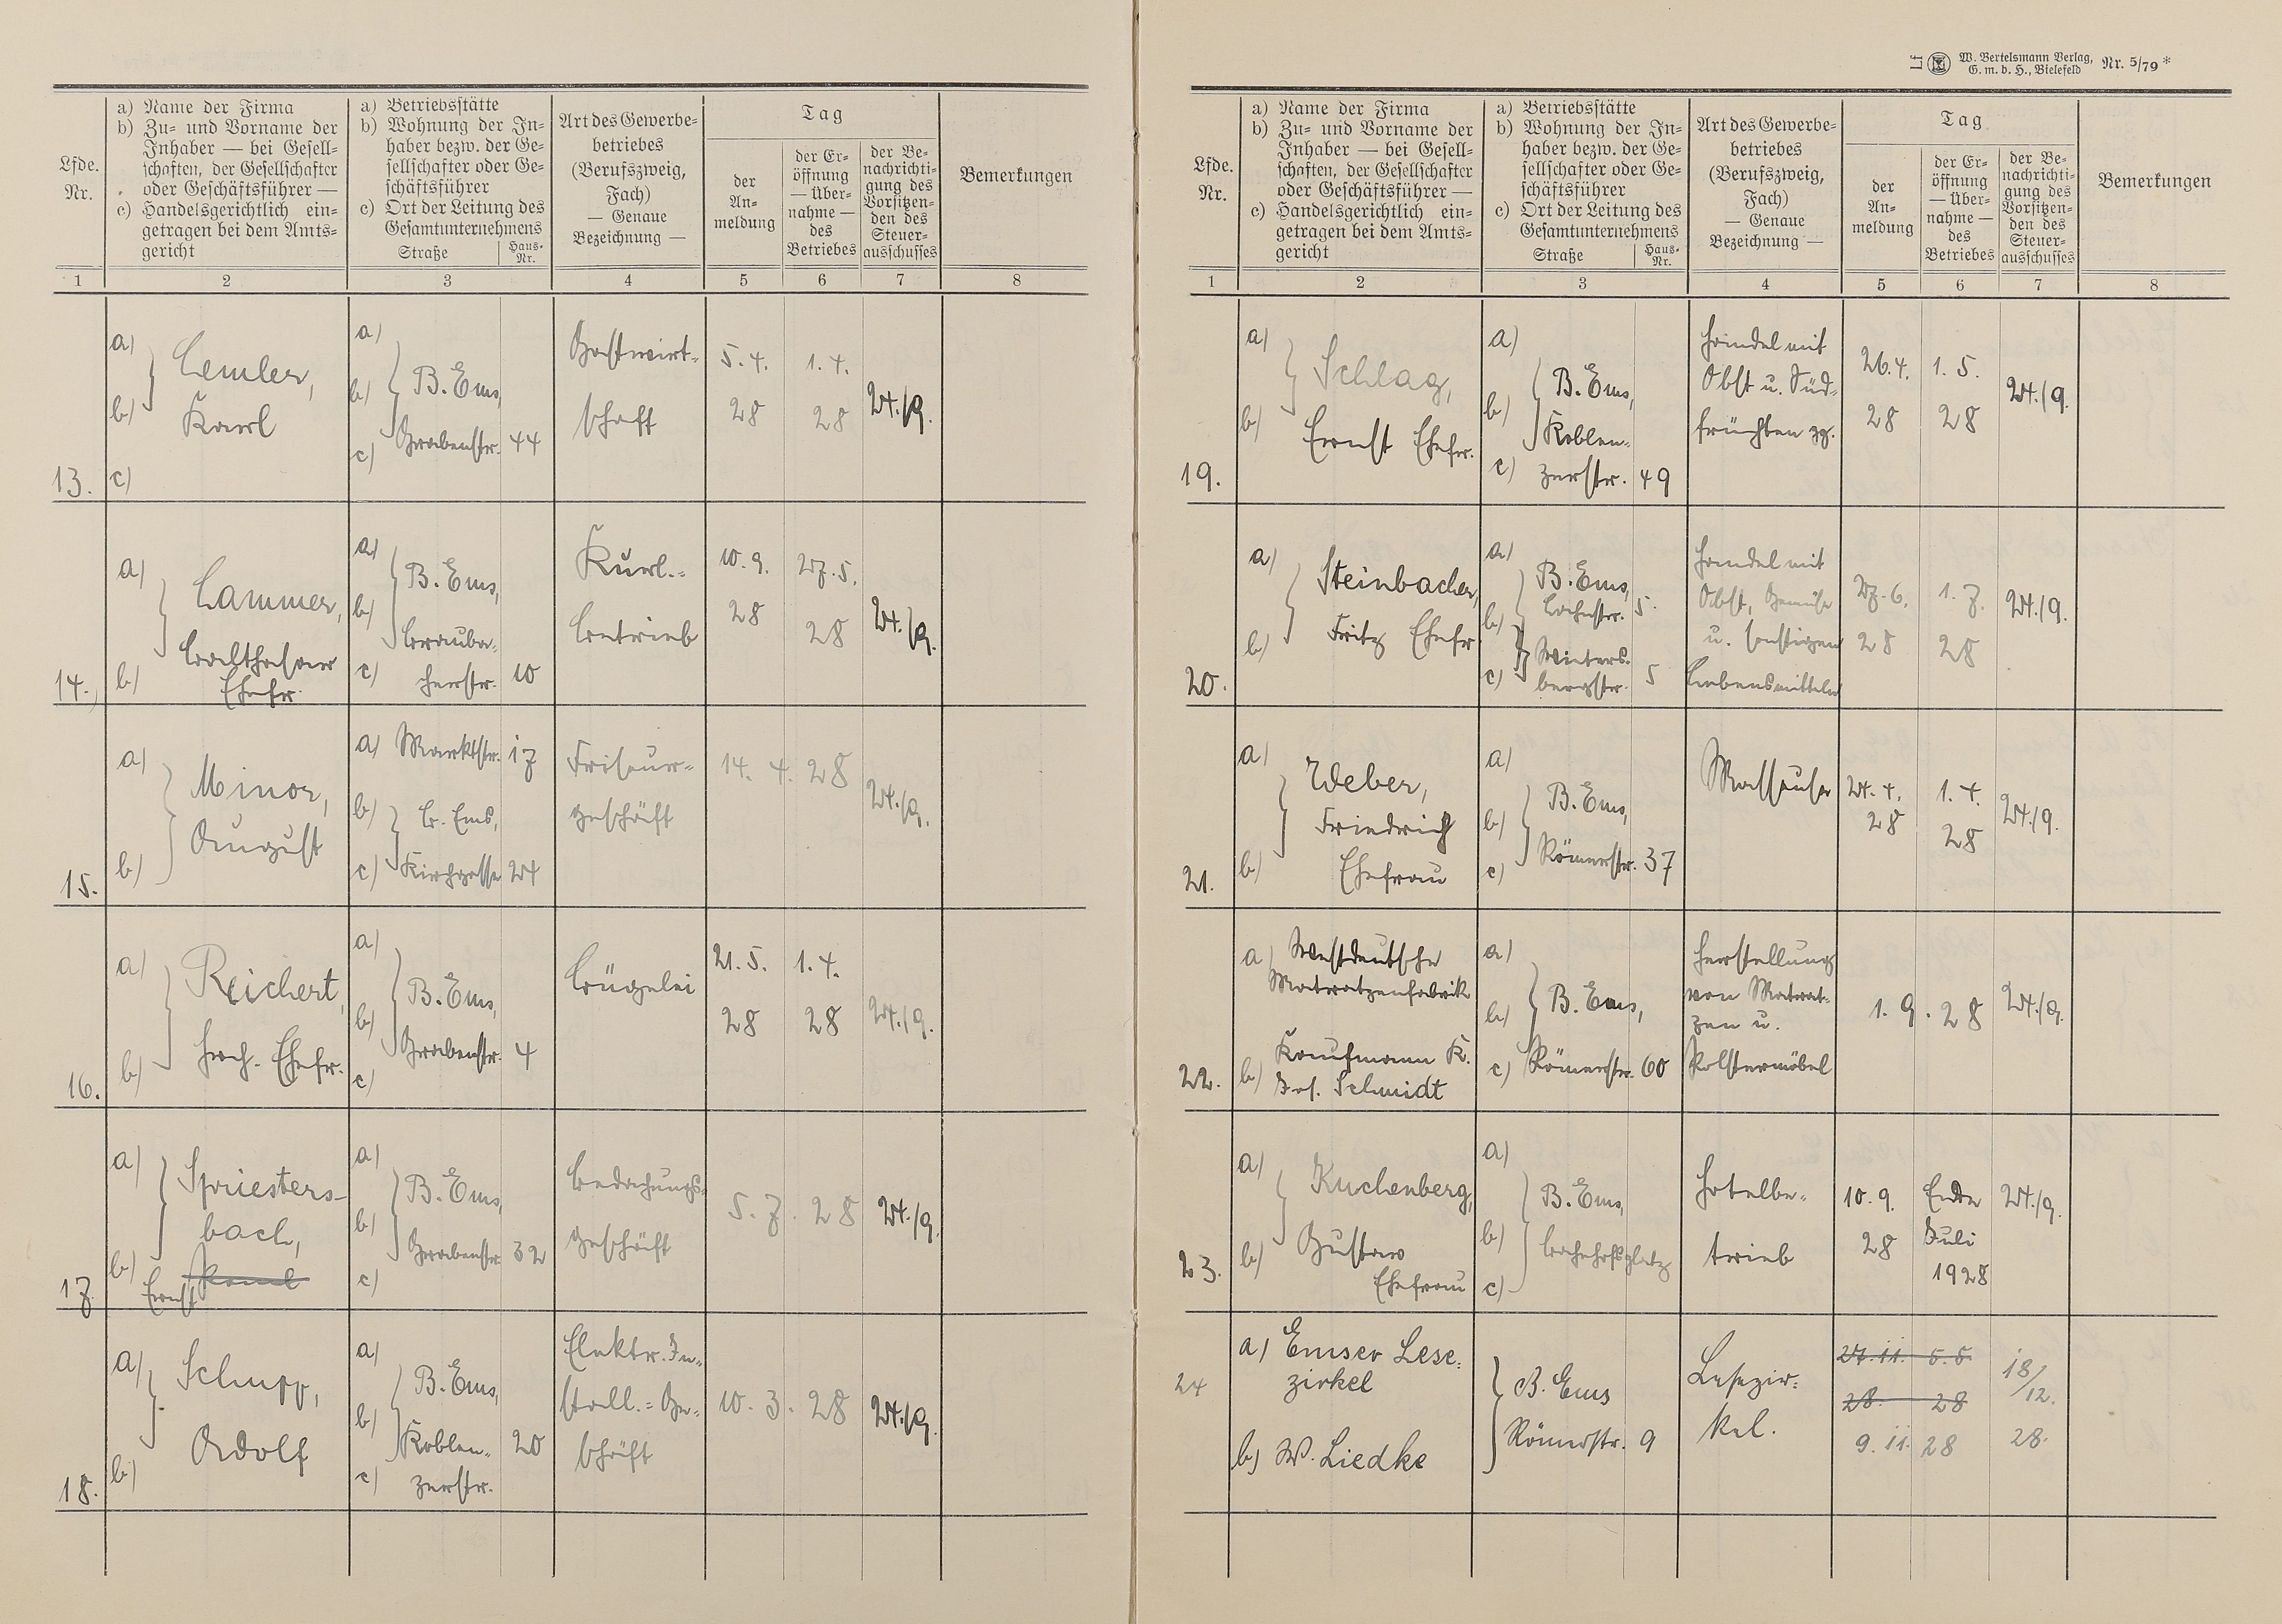 Lfde. Nr.
a) Name der Firma
b) Zu- und Vorname der
Inhaber — bei Gesell-
schaften, der Gesellschafter
oder Geschäftsführer —
c) Handelsgerichtlich ein-
getragen bei dem Amts-
gericht
a) Betriebsstätte
b) Wohnung der In-
haber bezw. der Ge-
sellschafter oder Ge-
schäftsführer
c) Ort der Leitung des
Gesamtunternehmens
Straße Haus-Nr.
Art des Gewerbe-
betriebes
(Berufszweig,
Fach)
— Genaue
Bezeichnung —
Tag
der
An-
meldung
der Er-
öffnung
— Über-
nahme —
des
Betriebes
der Be-
nachrichti-
gung des
Vorsitzen-
den des
Steuer-
ausschusses
Bemerkungen
1 2 3 4 5 6 7 8
13.
a)
b)
c)
Lemler,
Karl
a)
b)
c)
B. Ems,
Grabenstr. 44
Gastwirt-
schaft
5.4.
28
1.4.
28
24./9.
14.
a)
b)
Lammer,
Balthasar
Ehefr.
a)
b)
c)
B. Ems,
Brauba-
cherstr. 10
Kurl.-
betrieb
10.9.
28
27.5.
28
24./9.
15.
a)
b)
Minor,
August
a) Marktstr. 17
b) B. Ems,
c) Kirchgasse 24
Friseur-
geschäft
14. 4. 28
24./9.
16.
a)
b)
Reichert,
Hch. Ehefr.
a)
b)
c)
B. Ems,
Grabenstr. 4
Bügelei
21.5.
28
1.4.
28
24./9.
17.
a)
b)
Spriesters-
bach,
Ernst
a)
b)
c)
B. Ems,
Grabenstr. 32
Bedachungs-
geschäft
5. 7. 28
24./9.
18.
a)
b)
Schupp,
Adolf
a)
b)
c)
B. Ems,
Koblen- 20
zerstr.
Elektr. In-
stall.-Ge-
schäft
10. 3. 28
24./9.
W. Bertelsmann Verlag,
G. m. b. H., Bielefeld Nr. 5/79*
Lfde. Nr.
a) Name der Firma
b) Zu- und Vorname der
Inhaber — bei Gesell-
schaften, der Gesellschafter
oder Geschäftsführer —
c) Handelsgerichtlich ein-
getragen bei dem Amts-
gericht
a) Betriebsstätte
b) Wohnung der In-
haber bezw. der Ge-
sellschafter oder Ge-
schäftsführer
c) Ort der Leitung des
Gesamtunternehmens
Straße Haus-Nr.
Art des Gewerbe-
betriebes
(Berufszweig,
Fach)
— Genaue
Bezeichnung —
Tag
der
An-
meldung
der Er-
öffnung
— Über-
nahme —
des
Betriebes
der Be-
nachrichti-
gung des
Vorsitzen-
den des
Steuer-
ausschusses
Bemerkungen
1 2 3 4 5 6 7 8
19.
a)
b)
Schlag,
Ernst Ehefr.
a)
b)
c)
B. Ems,
Koblen-
zerstr. 49
Handel mit
Obst u. Süd-
früchten
26.4.
28
1.5.
28
24./9.
20.
a)
b)
Steinbacher,
Fritz Ehefr.
a)
b)
c)
B. Ems,
Bachstr. 5.
Winters-
bergstr. 5
Handel mit
Obst, Gemüse
u. sonstigen
Lebensmitteln
27.6.
28
1.7.
28
24./9.
21.
a)
b)
Weber,
Friedrich
Ehefrau
a)
b)
c)
B. Ems,
Römerstr. 37
Masseuse
24.4.
28
1.4.
28
24./9.
22.
a) Westdeutsche
Matratzenfabrik
b) Kaufmann K.
Jos. Schmidt
a)
b)
c)
B. Ems,
Römerstr. 60
Herstellung
von Matrat-
zen u.
Polstermöbel
1. 9. 28
24./9.
23.
a)
b)
Kuchenberg,
Gustav
Ehefrau
a)
b)
c)
B. Ems,
Bahnhofsplatz
Hotelbe-
trieb
10.9.
28
Ende
Juli
1928
24./9.
24
a) Emser Lese-
zirkel
b) W. Liedke
B. Ems
Römerstr. 9
Lesezir-
kel.
27.11. 5.5.
28. 28
9.11. 28
18/12.
28.